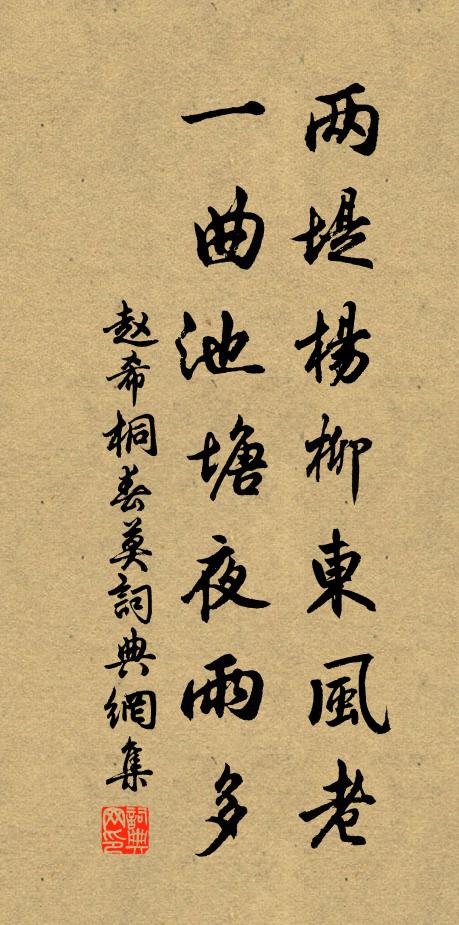 两堤楊柳東風老
一曲池塘夜雨多
赵希桐春莫詞典網集
詞典网印